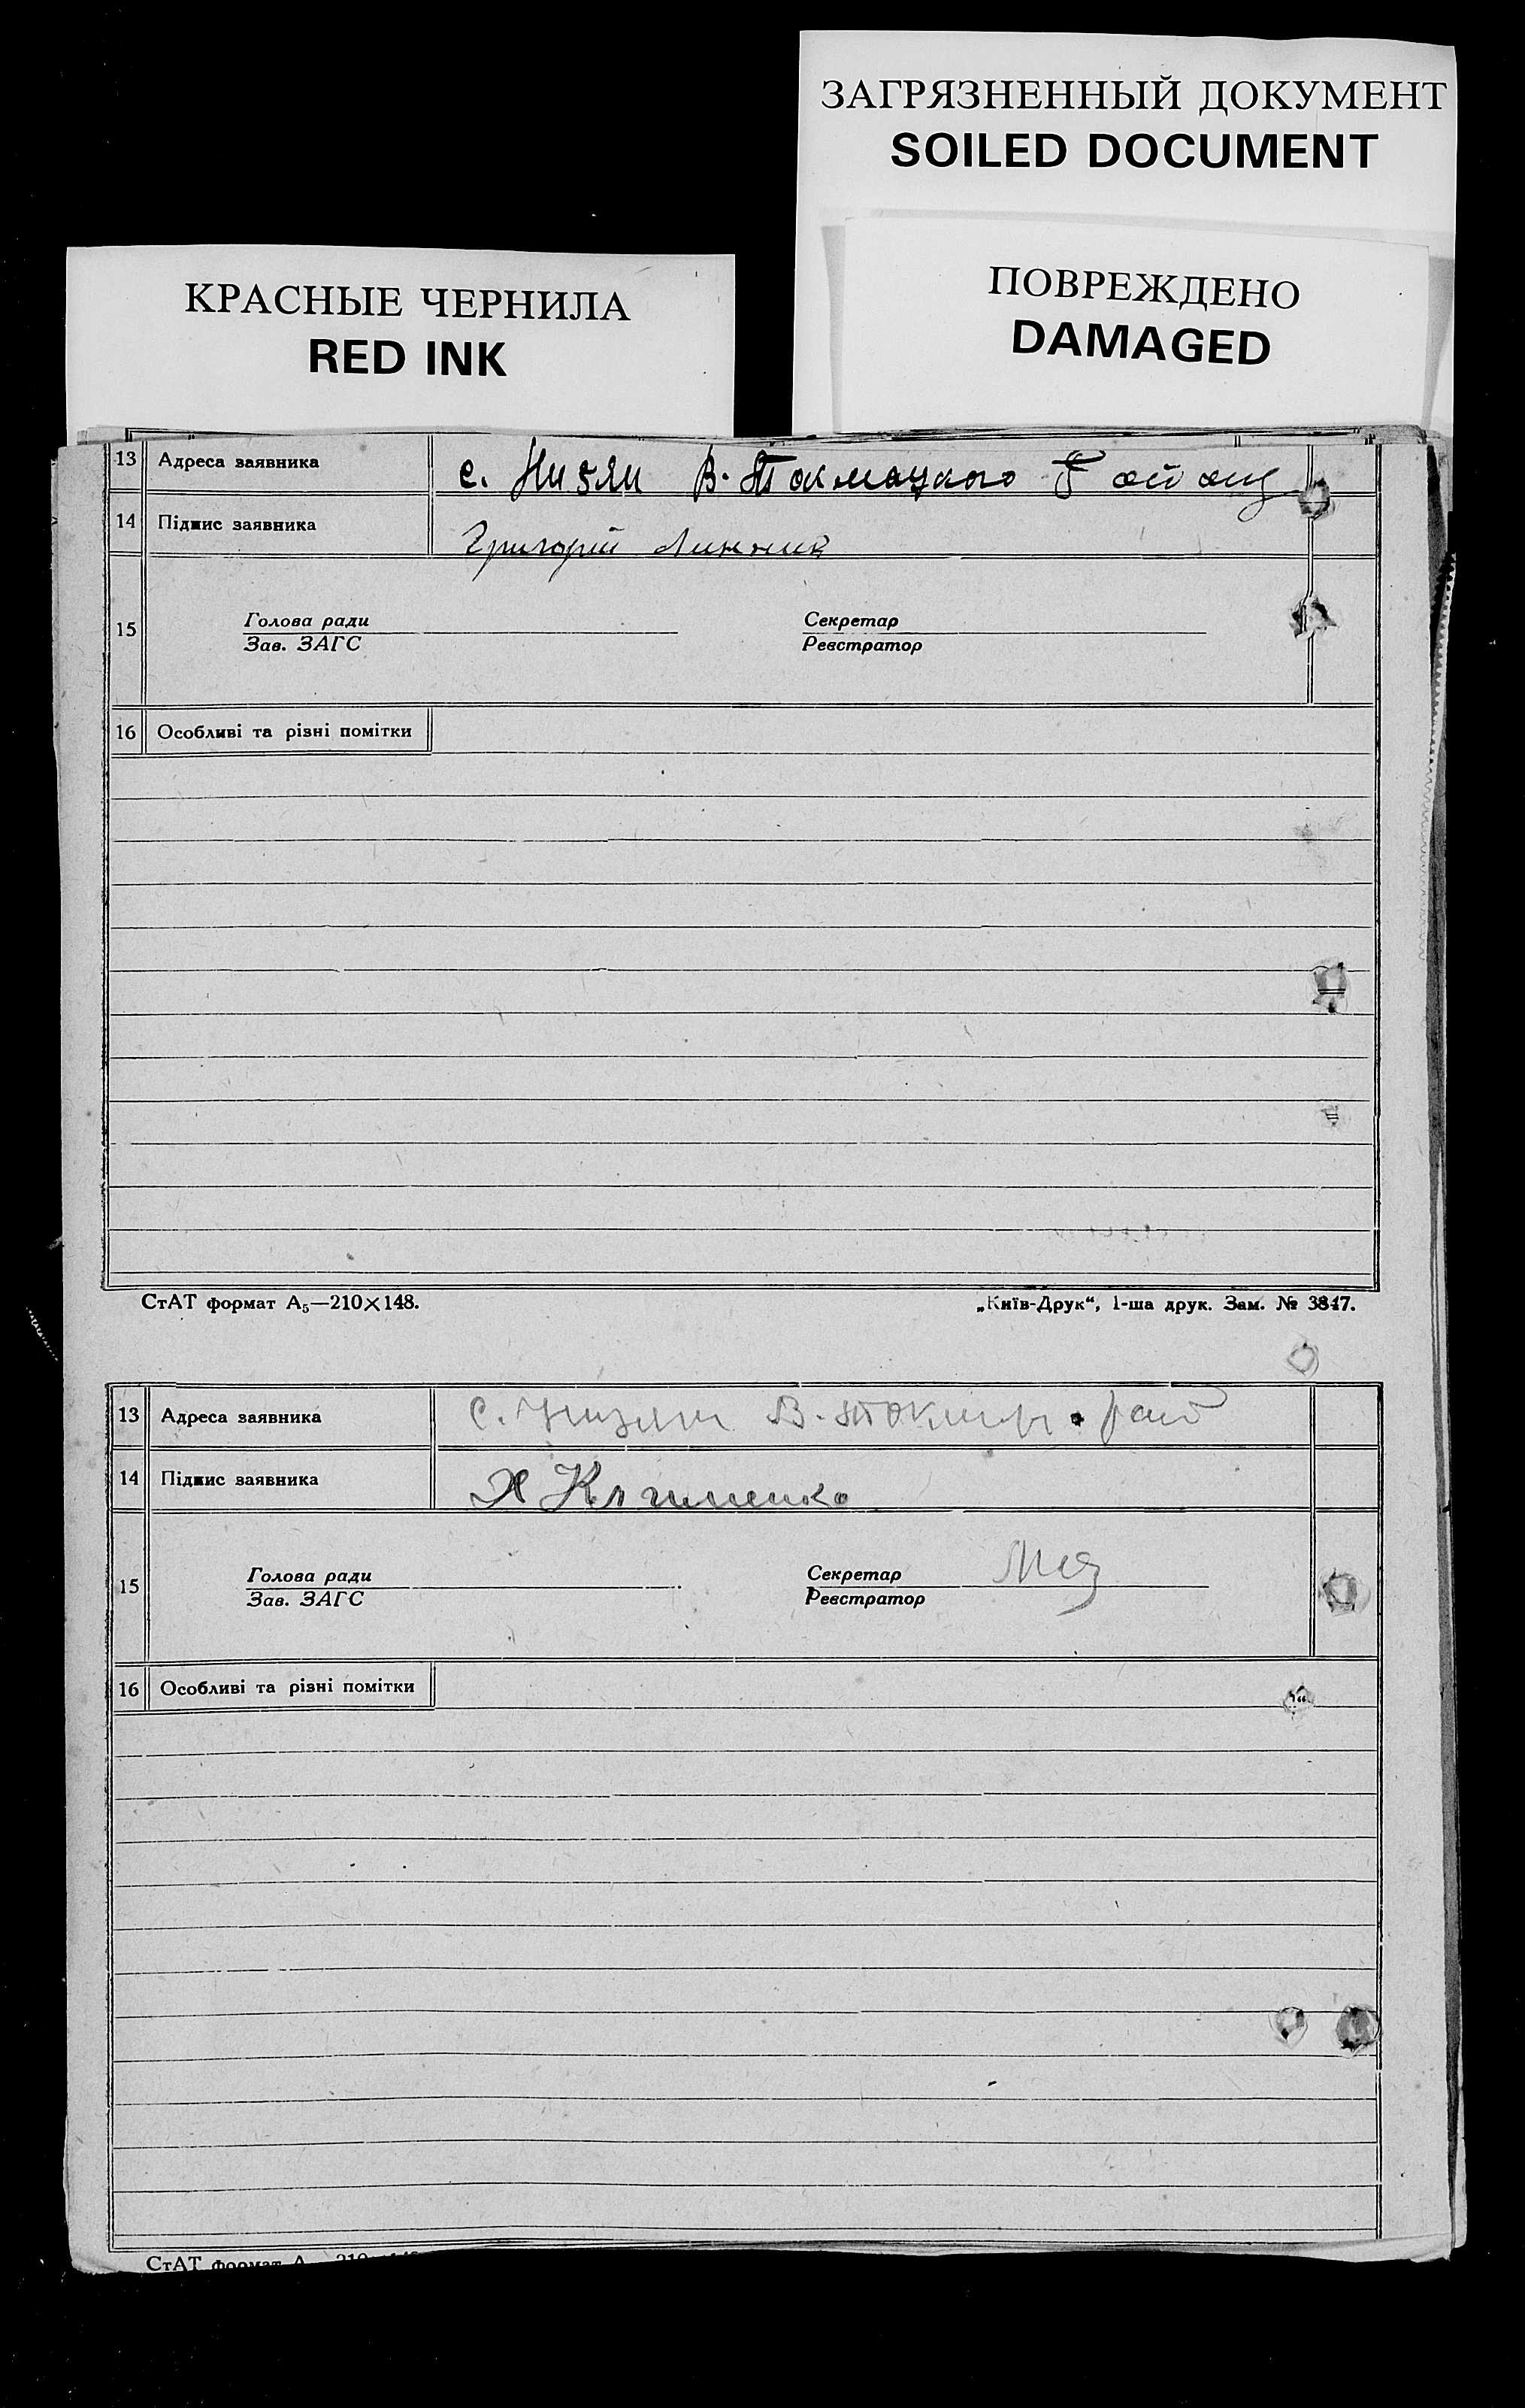 ЗАГРЯЗНЕННЫЙ ДОКУМЕНТ
SOILED DOCUMENT
ПОВРЕЖДЕНО
DAMAGED
КРАСНЫЕ ЧЕРНИЛА
RED INK
13 Адреса заявника с. Низяни В. Токмацкого
14 Підпис заявника Григорій Линник
15 Голова ради Секретар
Зав. ЗАГС Реєстратор
16 Особливі та різні помітки
СтАТ формат А₅—210×148. „Київ-Друк“, 1-ша друк. Зам. № 3847.
13 Адреса заявника с. В. рай
14 Підпис заявника
15 Голова ради Секретар
Зав. ЗАГС Реєстратор
16 Особливі та різні помітки
СтАТ формат А